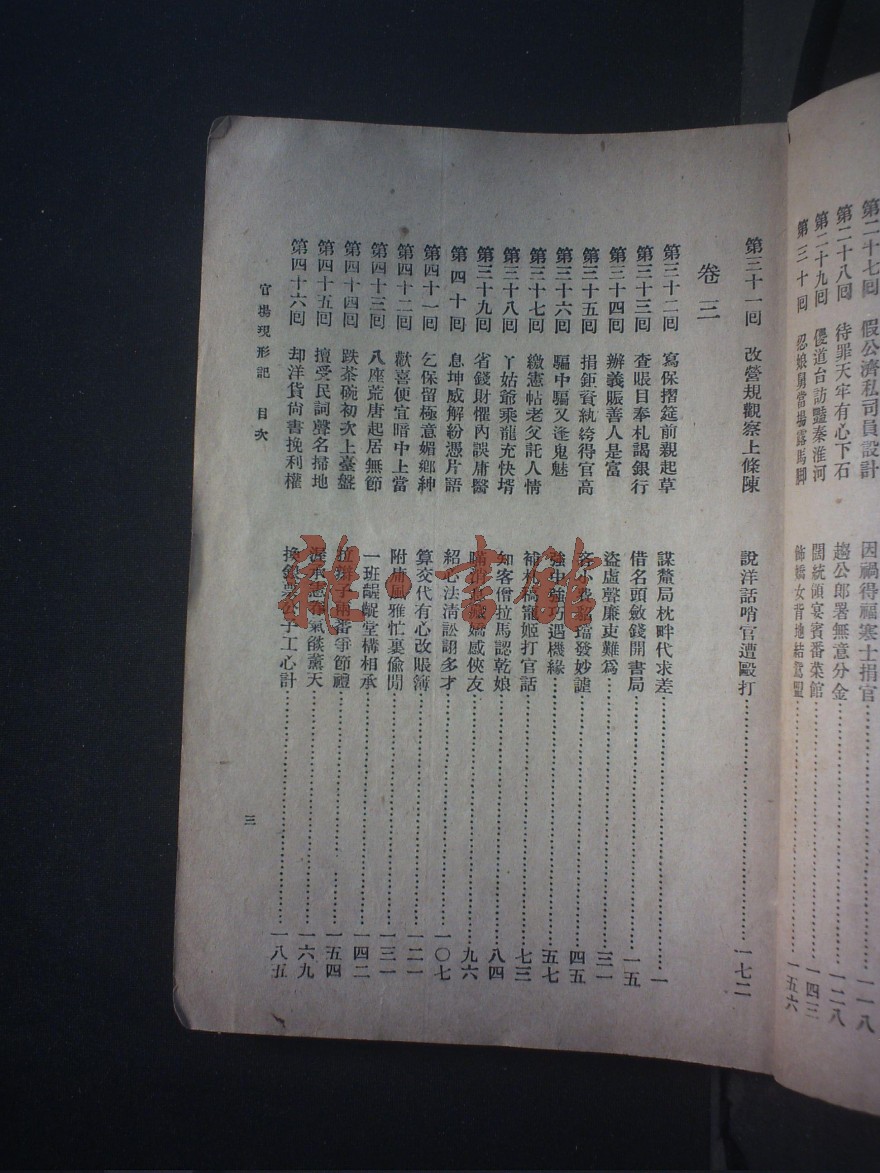 第二十七回 假公濟私司員設計 因禍得福寒士捐官 一一八
第二十八回 待罪天牢有心下石 趨公郎署無意分金 一二八
第二十九回 傻道台訪豔秦淮河 闊統領宴賓番菜館 一四三
第三十回 認娘舅當場露馬脚 飾嬌女背地結鴛盟 一五六
第三十一回 改營規觀察上條陳 說洋話哨官遭毆打 一七二
卷三
第三十二回 寫保摺筵前親起草 謀釐局枕畔代求差 一
第三十三回 查賬目奉札謁銀行 借名頭斂錢開書局 一五
第三十四回 辦義賑善人是富 盜虛聲廉吏難爲 三一
第三十五回 捐鉅資紈絝得官高 吝小費貂璫發妙謔 四五
第三十六回 騙中騙又逢鬼魅 強中強巧遇機緣 五七
第三十七回 繳憲帖老父託人情 補札稿寵姬打官話 七三
第三十八回 丫姑爺乘龍充快壻 知客僧拉馬認乾娘 八四
第三十九回 省錢財懼內誤庸醫 瞞消息藏嬌感俠友 九六
第四十回 息坤威解紛憑片語 紹心法清訟詡多才 一〇七
第四十一回 乞保留極意媚鄉紳 算交代有心改賬簿 一二一
第四十二回 歡喜便宜暗中上當 附庸風雅忙裏偷閒 一三一
第四十三回 八座荒唐起居無節 一班齷齪堂構相承 一四二
第四十四回 跌茶碗初次上臺盤 拉辮子兩番爭節禮 一五四
第四十五回 擅受民詞聲名掃地 渥承憲眷氣燄薰天 一六九
第四十六回 却洋貨尙書挽利權 換銀票公子工心計 一八五
官場現形記 目次
三
雅·書館